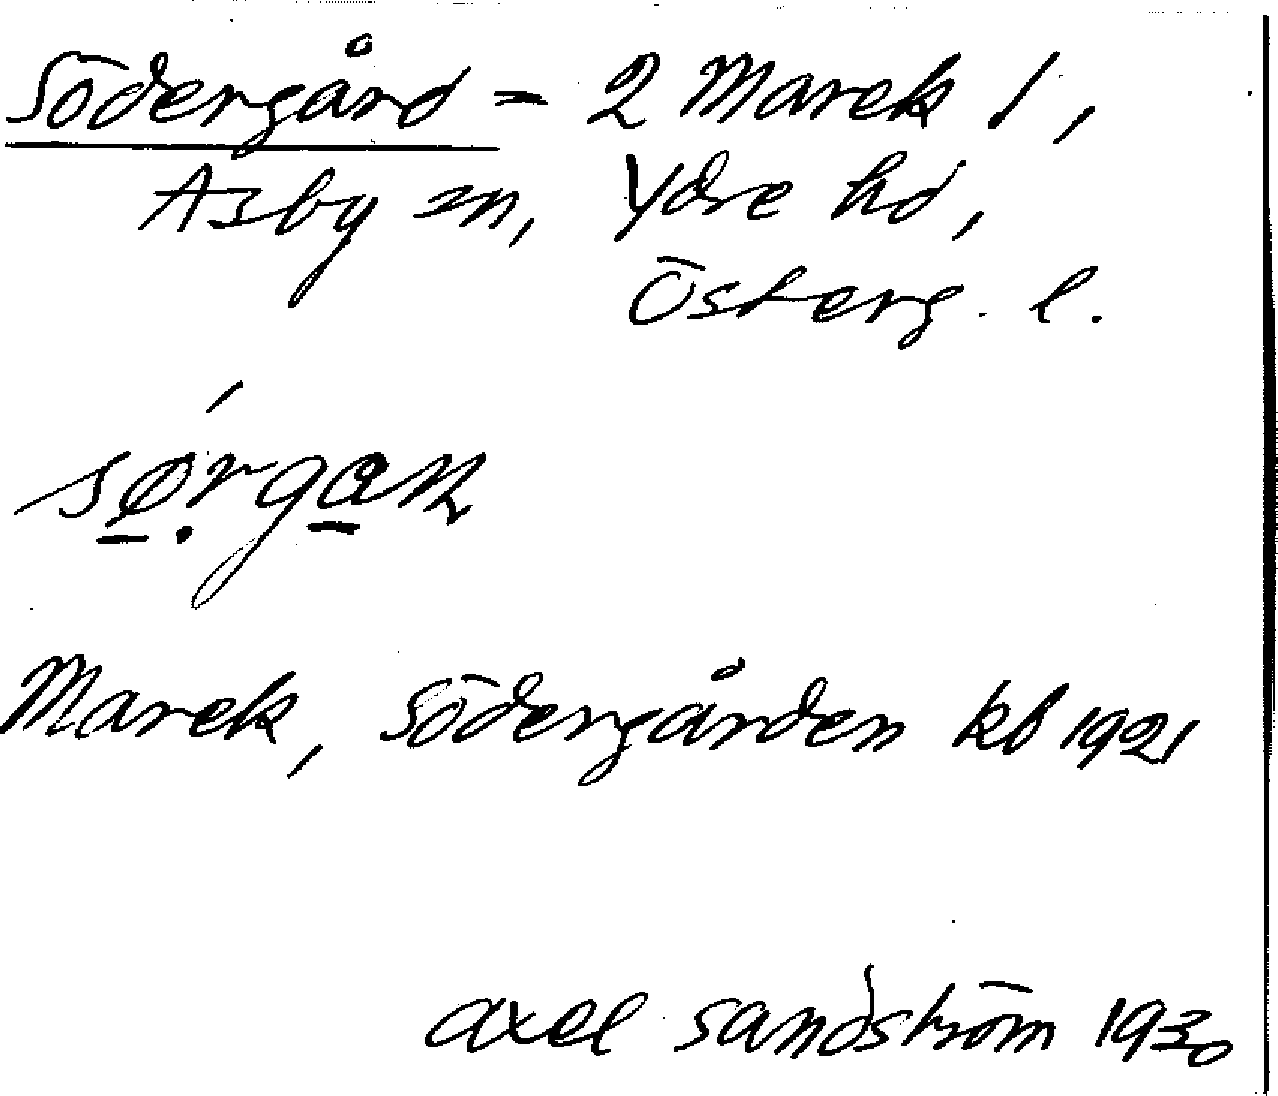 Södergård = 2 Marek 1,
Asby sn, Ydre hd,
Österg. l.
sø̠ṛga̠n
Marek, Södergården kb 1921
Axel Sandström 1930